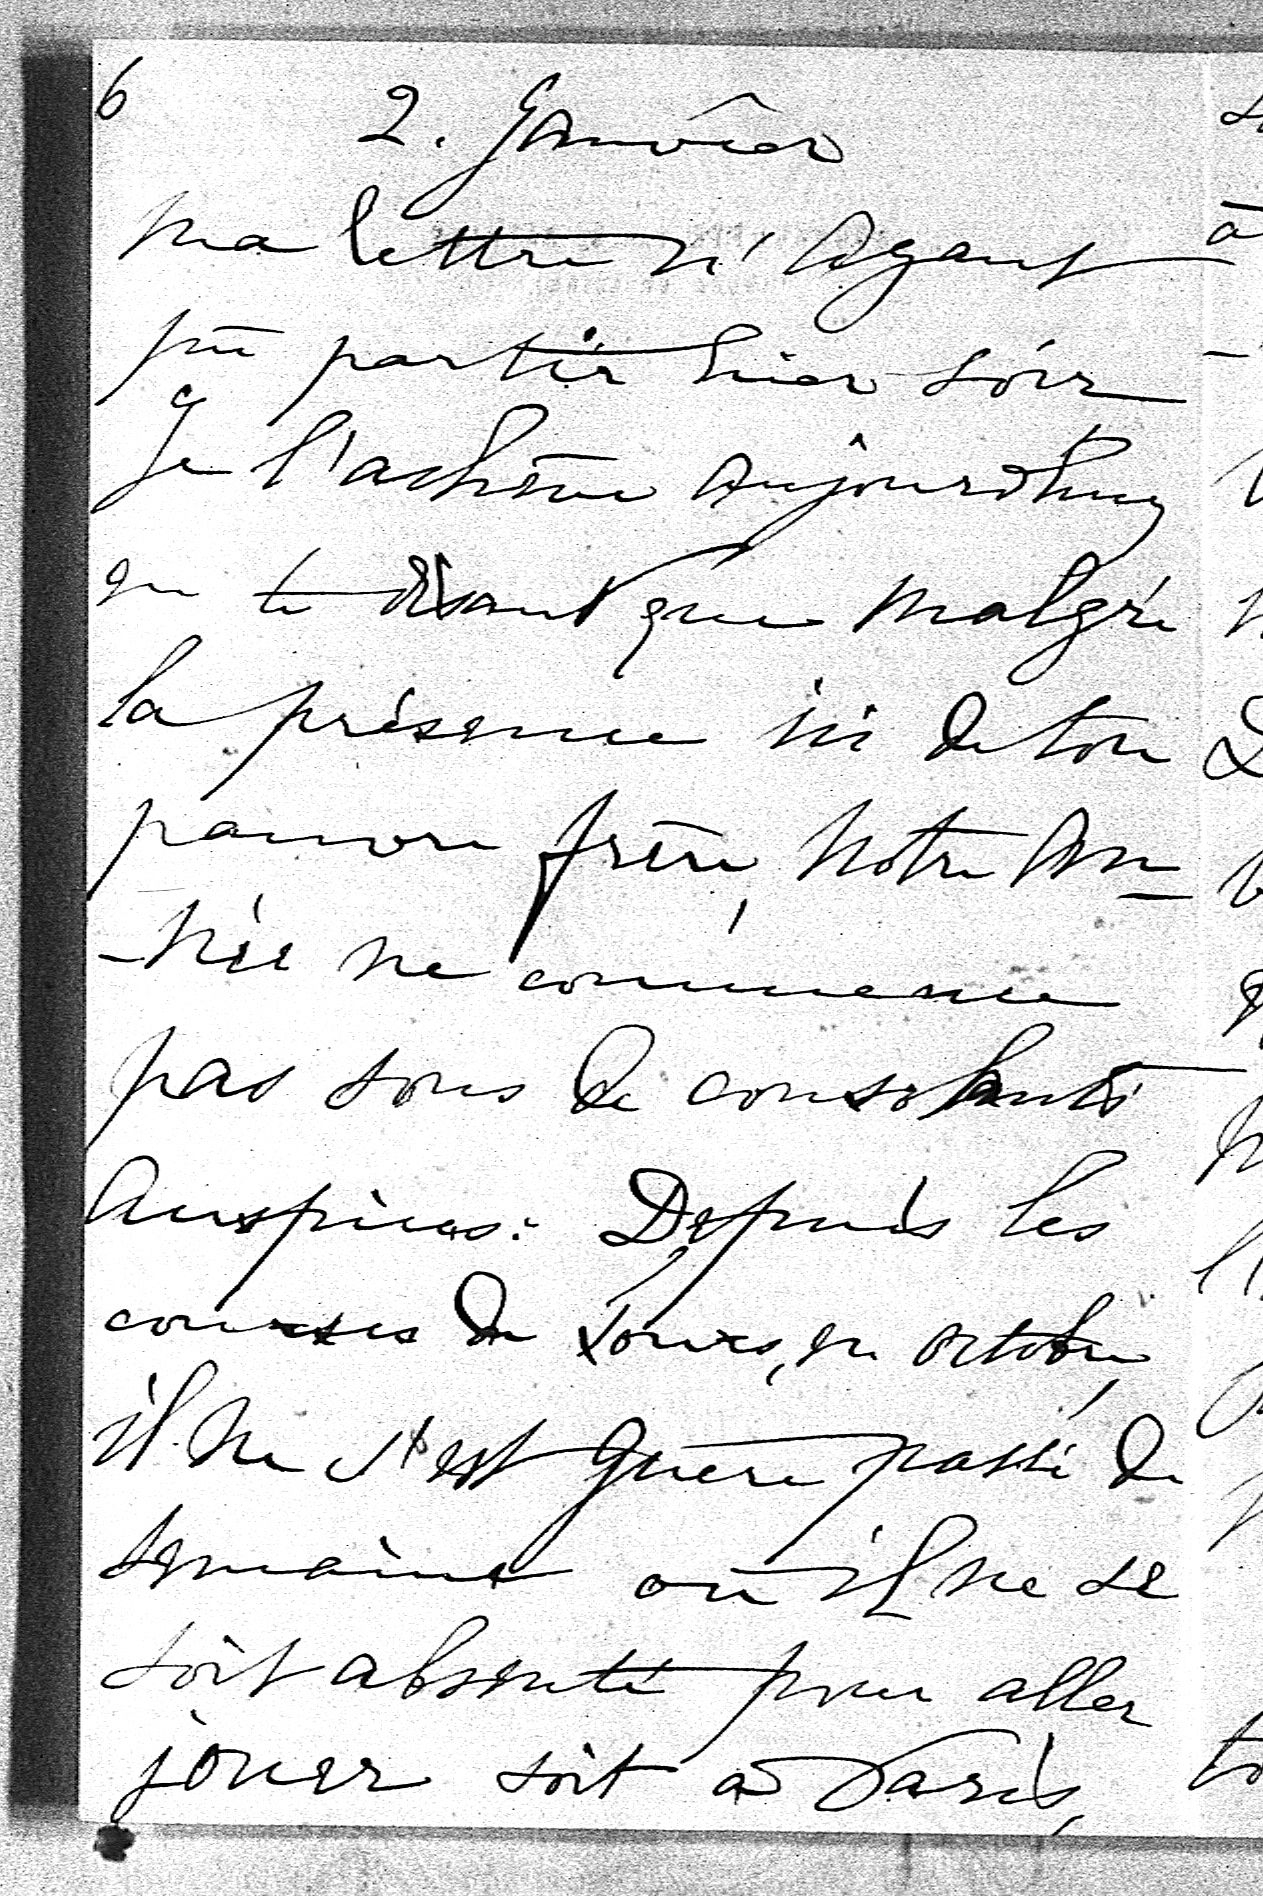 6
2. Janvier
Ma lettre n'ayant
pû partir hier soir
Je l'achève aujourd'huy
en te disant que malgré
la présence ici de ton
pauvre frère, notre An-
-née ne commence
pas sous de consolants
Auspices: Depuis les
courses de Tours, en octobre,
il ne s'est guère passé de
semaine où il ne se
soit absenté pour aller
jouer soit à Paris,